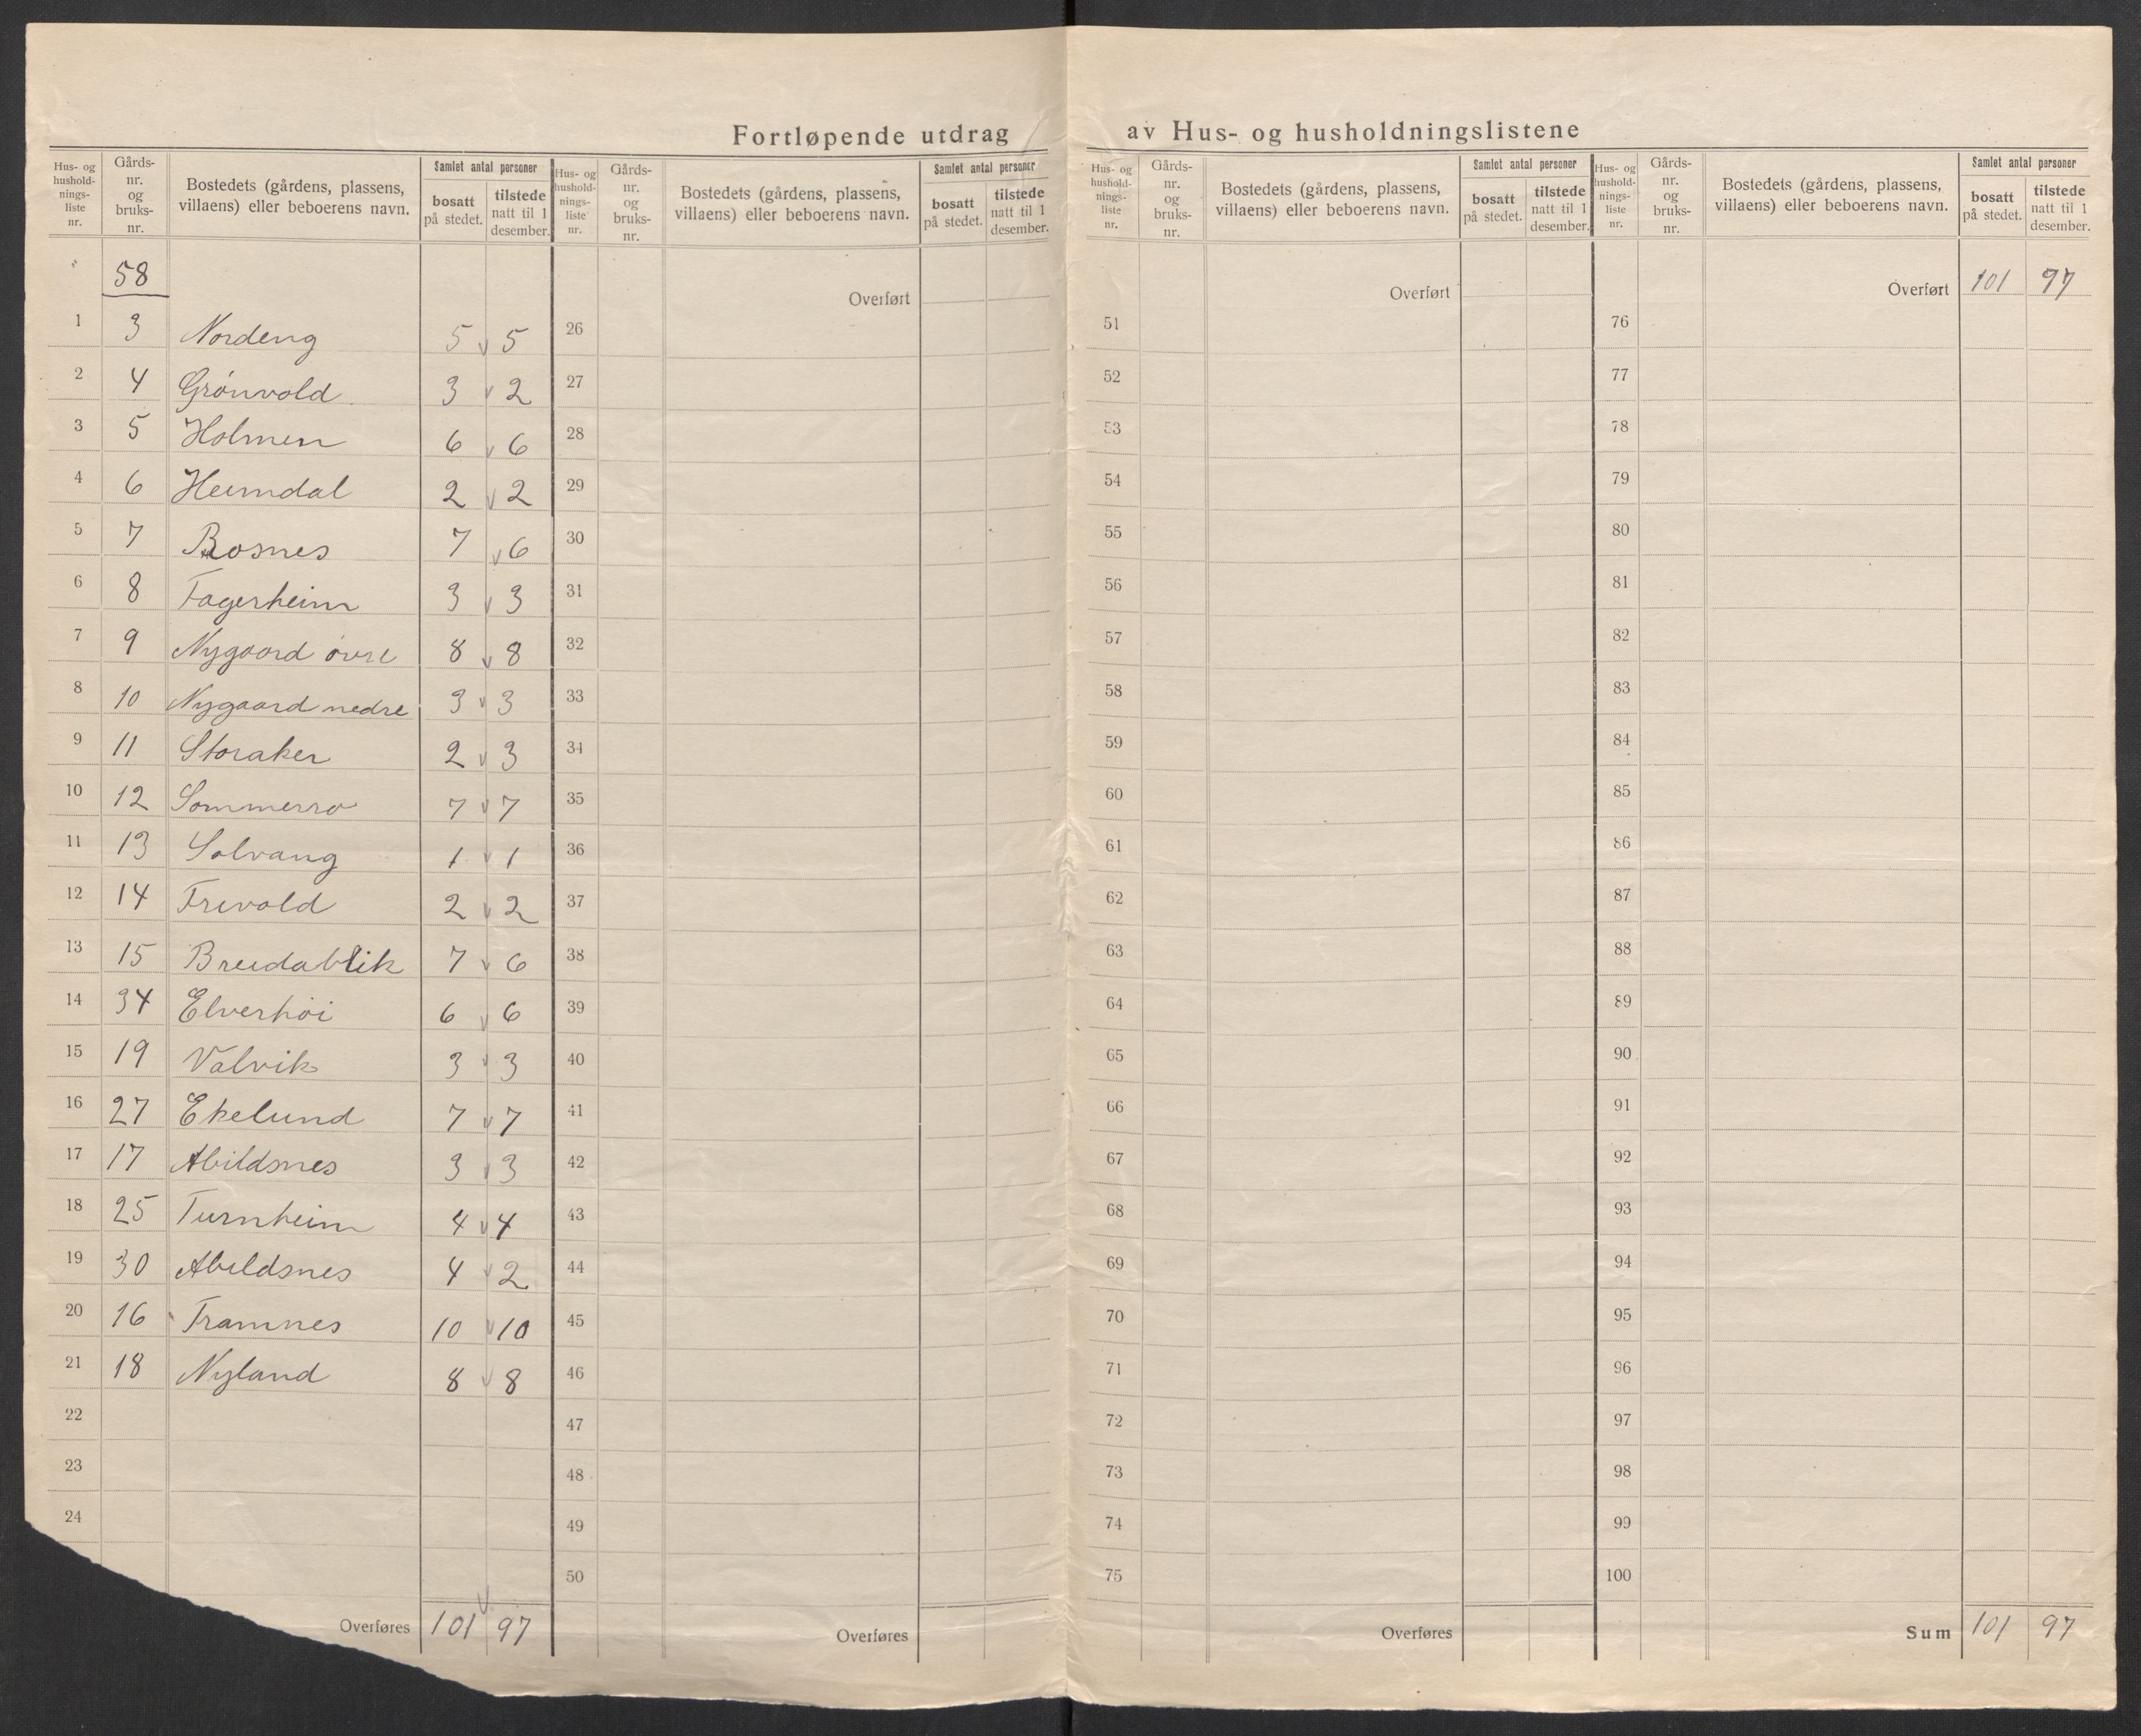 Fortløpende utdrag av Hus- og husholdningslistene
Hus- og hushold-nings-liste nr. | Gårds-nr. og bruks-nr. | Bostedets (gårdens, plassens, villaens) eller beboerens navn. | Samlet antal personer | bosatt på stedet. | tilstede natt til 1 desember.
58
1 3 Nordeng 5 v 5
2 4 Grønvold 3 v 2
3 5 Holmen 6 v 6
4 6 Heimdal 2 v 2
5 7 Bosnes 7 v 6
6 8 Fagerheim 3 v 3
7 9 Nygaard øvre 8 v 8
8 10 Nygaard nedre 3 v 3
9 11 Storaker 2 v 3
10 12 Sommerro 7 v 7
11 13 Solvang 1 v 1
12 14 Frivold 2 v 2
13 15 Breidablik 7 v 6
14 34 Elverhøi 6 v 6
15 19 Valvik 3 v 3
16 27 Ekelund 7 v 7
17 17 Abildsnes 3 v 3
18 25 Turnheim 4 v 4
19 30 Abildsnes 4 v 2
20 16 Framnes 10 v 10
21 18 Nyland 8 v 8
22
23
24
v
Overføres 101 97
Hus- og hushold-nings-liste nr. | Gårds-nr. og bruks-nr. | Bostedets (gårdens, plassens, villaens) eller beboerens navn. | Samlet antal personer | bosatt på stedet. | tilstede natt til 1 desember.
Overført
26
27
28
29
30
31
32
33
34
35
36
37
38
39
40
41
42
43
44
45
46
47
48
49
50
Overføres
Hus- og hushold-nings-liste nr. | Gårds-nr. og bruks-nr. | Bostedets (gårdens, plassens, villaens) eller beboerens navn. | Samlet antal personer | bosatt på stedet. | tilstede natt til 1 desember.
Overført
51
52
53
54
55
56
57
58
59
60
61
62
63
64
65
66
67
68
69
70
71
72
73
74
75
Overføres
Hus- og hushold-nings-liste nr. | Gårds-nr. og bruks-nr. | Bostedets (gårdens, plassens, villaens) eller beboerens navn. | Samlet antal personer | bosatt på stedet. | tilstede natt til 1 desember.
Overført 101 97
76
77
78
79
80
81
82
83
84
85
86
87
88
89
90
91
92
93
94
95
96
97
98
99
100
Sum 101 97